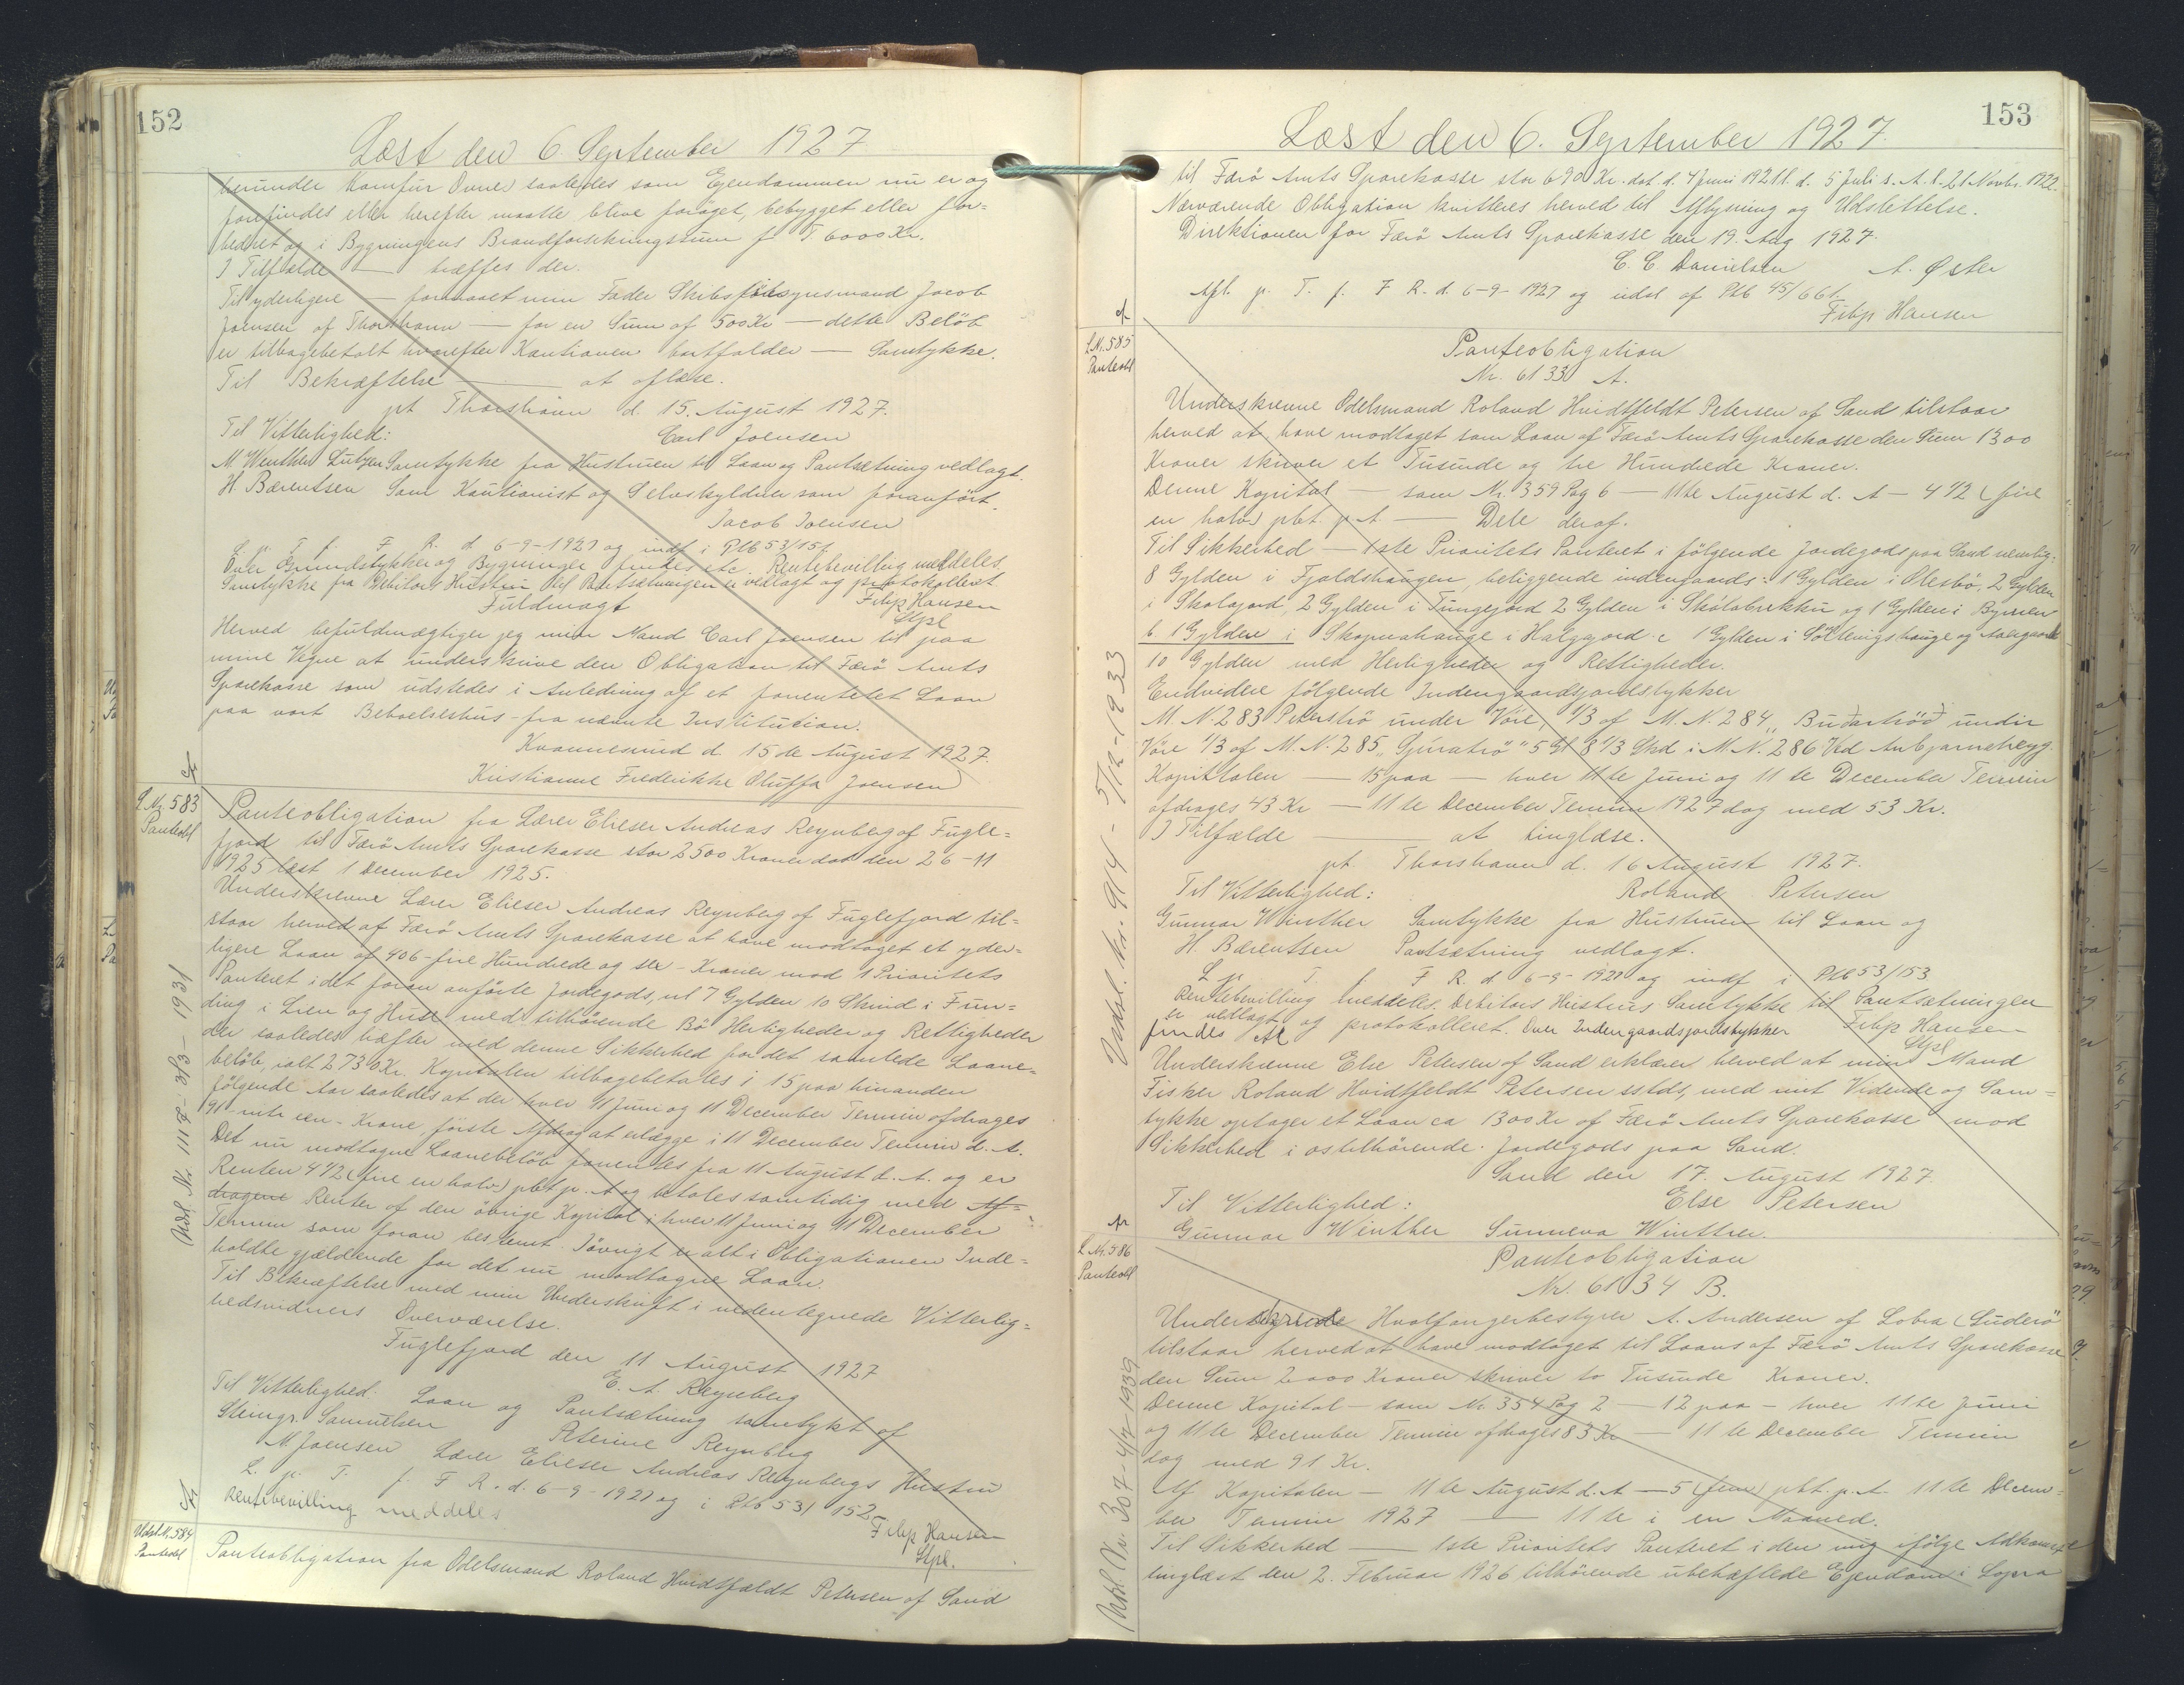 152
Læst den 6. September 1927
herunder Komfur Ovne saaledes som Ejendommen nu er og
forefindes eller herefter maatte blive forøget, bebygget eller for=
bedret og i Bygningens Brandforsikringssum f T 6000 Kr.
I Tilfælde — træffes der.
Til yderligere — formaaet min Fader Skibs synsmand Jacob
Joensen af Thorshavn — for en Sum af 500 Kr — dette Beløb
er tilbagebetalt hvorefter Kautionen bortfalder — Samtykke.
Til Bekræftelse — at aflæse.
pt Thorshavn d. 15. August 1927.
Til Vitterlighed: Carl Joensen
M. Winther Lützen Samtykke fra Hustruen til Laan og Pantsætning vedlagt.
H. Bærentsen Som Kautionist og Selvskyldner som foranført.
Jacob Joensen
L. p. T. f. F. R. d. 6-9-1927 og indf i Ptb 53/151
Over Grundstykker og Bygninger findes etc. Rentebevilling meddeles.
Samtykke fra Debitors Hustru til Pantsætningen er vedlagt og protokolleret
Fuldmagt Filip Hansen
Stpl
Herved befuldmægtiger jeg min Mand Carl Joensen til paa
mine Vegne at underskrive den Obligation til Færø Amts
Sparekasse som udstedes i Anledning af et forventetet Laan
paa vort Beboelseshus fra nævnte Institution.
Kvannesund d. 15 de August 1927.
Kristianne Frederikke Oluffa Joensen
L. Nr. 583
Panteobl
Panteobligation fra Lærer Elieser Andreas Reynberg af Fugle=
fjord til Færø Amts Sparekasse stor 2500 Kroner dat den 26-11
1925 læst 1 December 1925.
Underskrevne Lærer Elieser Andreas Reynberg af Fuglefjord til=
staar herved af Færø Amts Sparekasse at have modtaget et yder=
ligere Laan af 406 - fire Hundrede og sex - Kroner mod 1 Prioritets
Panteret i det foran anførte Jordegods, nl 7 Gylden 10 Skind i Fun=
ding i Lren og Huse med tilhørende Bø Herligheder og Rettigheder
der saaledes hæfter med denne Sikkerhed for det samlede Laane=
beløb, ialt 2730 Kr. Kapitalen tilbagebetales i 15 paa hinanden
følgende Aar saaledes at der hver 11 Juni og 11 December Termin afdrages
91 - niti een - Krone, første Afdrag at erlægge i 11 December Termin d. A.
Det nu modtagne Laanebeløb forrentes fra 11 August d. A. og er
Renten 4 1/2 (fire en halv) pCt p. A og betales samtidig med Af=
dragene Renter af den øvrige Kapital i hver 11 Juni og 11 December
Termin som foran bestemt. Iøvrigt er alt i Obligationen Inde=
holdte gjældende for det nu modtagne Laan.
Til Bekræftelse med min Underskrift i nedentegnede Vitterlig=
hedsvidners Overværelse.
Fuglefjord den 11 August 1927
E. A. Reynberg
Til Vitterlighed: Laan og Pantsætning samtykt af
Steingr. Samuelsen Peterine Reynberg
M. Joensen Lærer Elieser Andreas Reynbergs Hustru
L. p. T. f. F R. d. 6-9-1927 og i Ptb 53/152
Rentebevilling meddeles Filip Hansen
Stpl.
Udsl. Nr. 111 - 3/3 - 1931
Udsl. N. 584
Panteobl
Panteobligation fra Odelsmand Roland Hvidtfeldt Petersen af Sand
153
Læst den 6. September 1927.
til Færø Amts Sparekasse stor 690 Kr. dat. d. 4 Juni 1921 l. d. 5 Juli s. A. l. 21 Novbr. 1922.
Nærværende Obligation kvitteres herved til Aflysning og Udslettelse.
Direktionen for Færø Amts Sparekasse den 19. Aug 1927.
C. C Danielsen A. Øster
Afl. p. T. f. F R. d. 6-9-1927 og udsl af Ptb 45/661
Filip Hansen
L. Nr. 585
Panteobl
Panteobligation
Nr. 6133 A.
Underskrevne Odelsmand Roland Hvidtfeldt Petersen af Sand tilstaar
herved at have modtaget som Laan af Færø Amts Sparekasse den Sum 1300
Kroner skriver et Tusinde og tre Hundrede Kroner.
Denne Kapital — som Nr. 359 Pag 6 — 11te August d. A — 4 1/2 (fire
en halv) pCt. p. A — Dele deraf.
Til Sikkerhed — 1ste Prioritets Panteret i følgende Jordegods paa Sand nemlig:
8 Gylden i Fjaldshaugen, beliggende indengaards: 1 Gylden i Olesbø, 2 Gylden
i Skolajord, 2 Gylden i Tungejord 2 Gylden i Skotabrekku og 1 Gylden i Bymen
b 1 Gylden i Skopunahauge i Halgajord c 1 Gylden i Søltuvigshauge og
10 Gylden med Herligheder og Rettigheder.
Endvidere følgende Indengaardsjordstykker
M. N. 283 Peterstrø under Vøre, 1/3 af M. N. 284 "Budartrød" undir
Vøre 1/3 af M. N. 285 "Gjuratrø" 5 Gl 8 1/3 Skd i M. N. 286 Ved Anbjarnehegg.
Kapitalen — 15 paa — hver 11te Juni og 11te December Termin
afdrages 43 Kr — 11te December Termin 1927 dog med 53 Kr.
I Tilfælde — at tinglæse.
pt. Thorshavn d. 16 August 1927.
Til Vitterlighed: Roland Petersen
Gunnar Winther Samtykke fra Hustruen til Laan og
H. Bærentsen Pantsætning vedlagt.
L p. T. f. F R. d. 6-9-1927 og indf i Ptb 53/153
Rentebevilling meddeles. Debitors Hustrus Samtykke til Pantsætningen
er vedlagt og protokolleret. Over Indengaardsjordstykker Filip Hansen
findes etc Stpl
Underskrevne Else Petersen af Sand erklærer herved at min Mand
Fisker Roland Hvidtfeldt Petersen sstds, med mit Vidende og Sam=
tykke optager et Laan ca 1300 Kr af Færø Amts Sparekasse mod
Sikkerhed i os tilhørende Jordegods paa Sand.
Sand den 17. August 1927.
Til Vitterlighed: Else Petersen
Gunnar Winther Sunneva Winther.
Udsl. Nr. 914 - 5/12-1933
L. Nr. 586
Panteobl
Panteobligation
Nr. 6134 B.
Undertegnede Hvalfangerbestyrer A. Andersen af Lobra (Suderø
tilstaar herved at have modtaget til Laans af Færø Amts Sparekasse
den Sum 2000 Kroner skriver to Tusinde Kroner.
Denne Kapital — som Nr. 354 Pag 2 — 12 paa — hver 11te Juni
og 11te December Termin afdrages 83 Kr — 11te December Termin
dog med 91 Kr.
Af Kapitalen — 11te August d. A — 5 (fem) pCt. p. A. 11te Decem=
ber Termin 1927 — 11te i en Maaned.
Til Sikkerhed — 1ste Prioritets Panteret i den mig ifølge Adkomst
tinglæst den 2. Februar 1926 tilhørende ubehæftede Ejendom i Lopra
Udsl. Nr. 307 - 4/7 1939